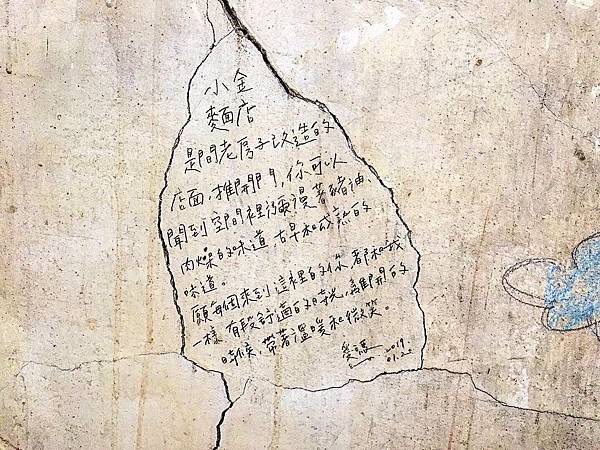 小金
麵店
是間老房子改造的
店面,推開門,你可以
聞到空間裡瀰漫著豬神
肉燥的味道,古早和成熟的
味道。
願每個來到這裡的你,都和我
一樣有段舒適的時光,離開的
時候,帶著溫暖和微笑。
2019.
01.22